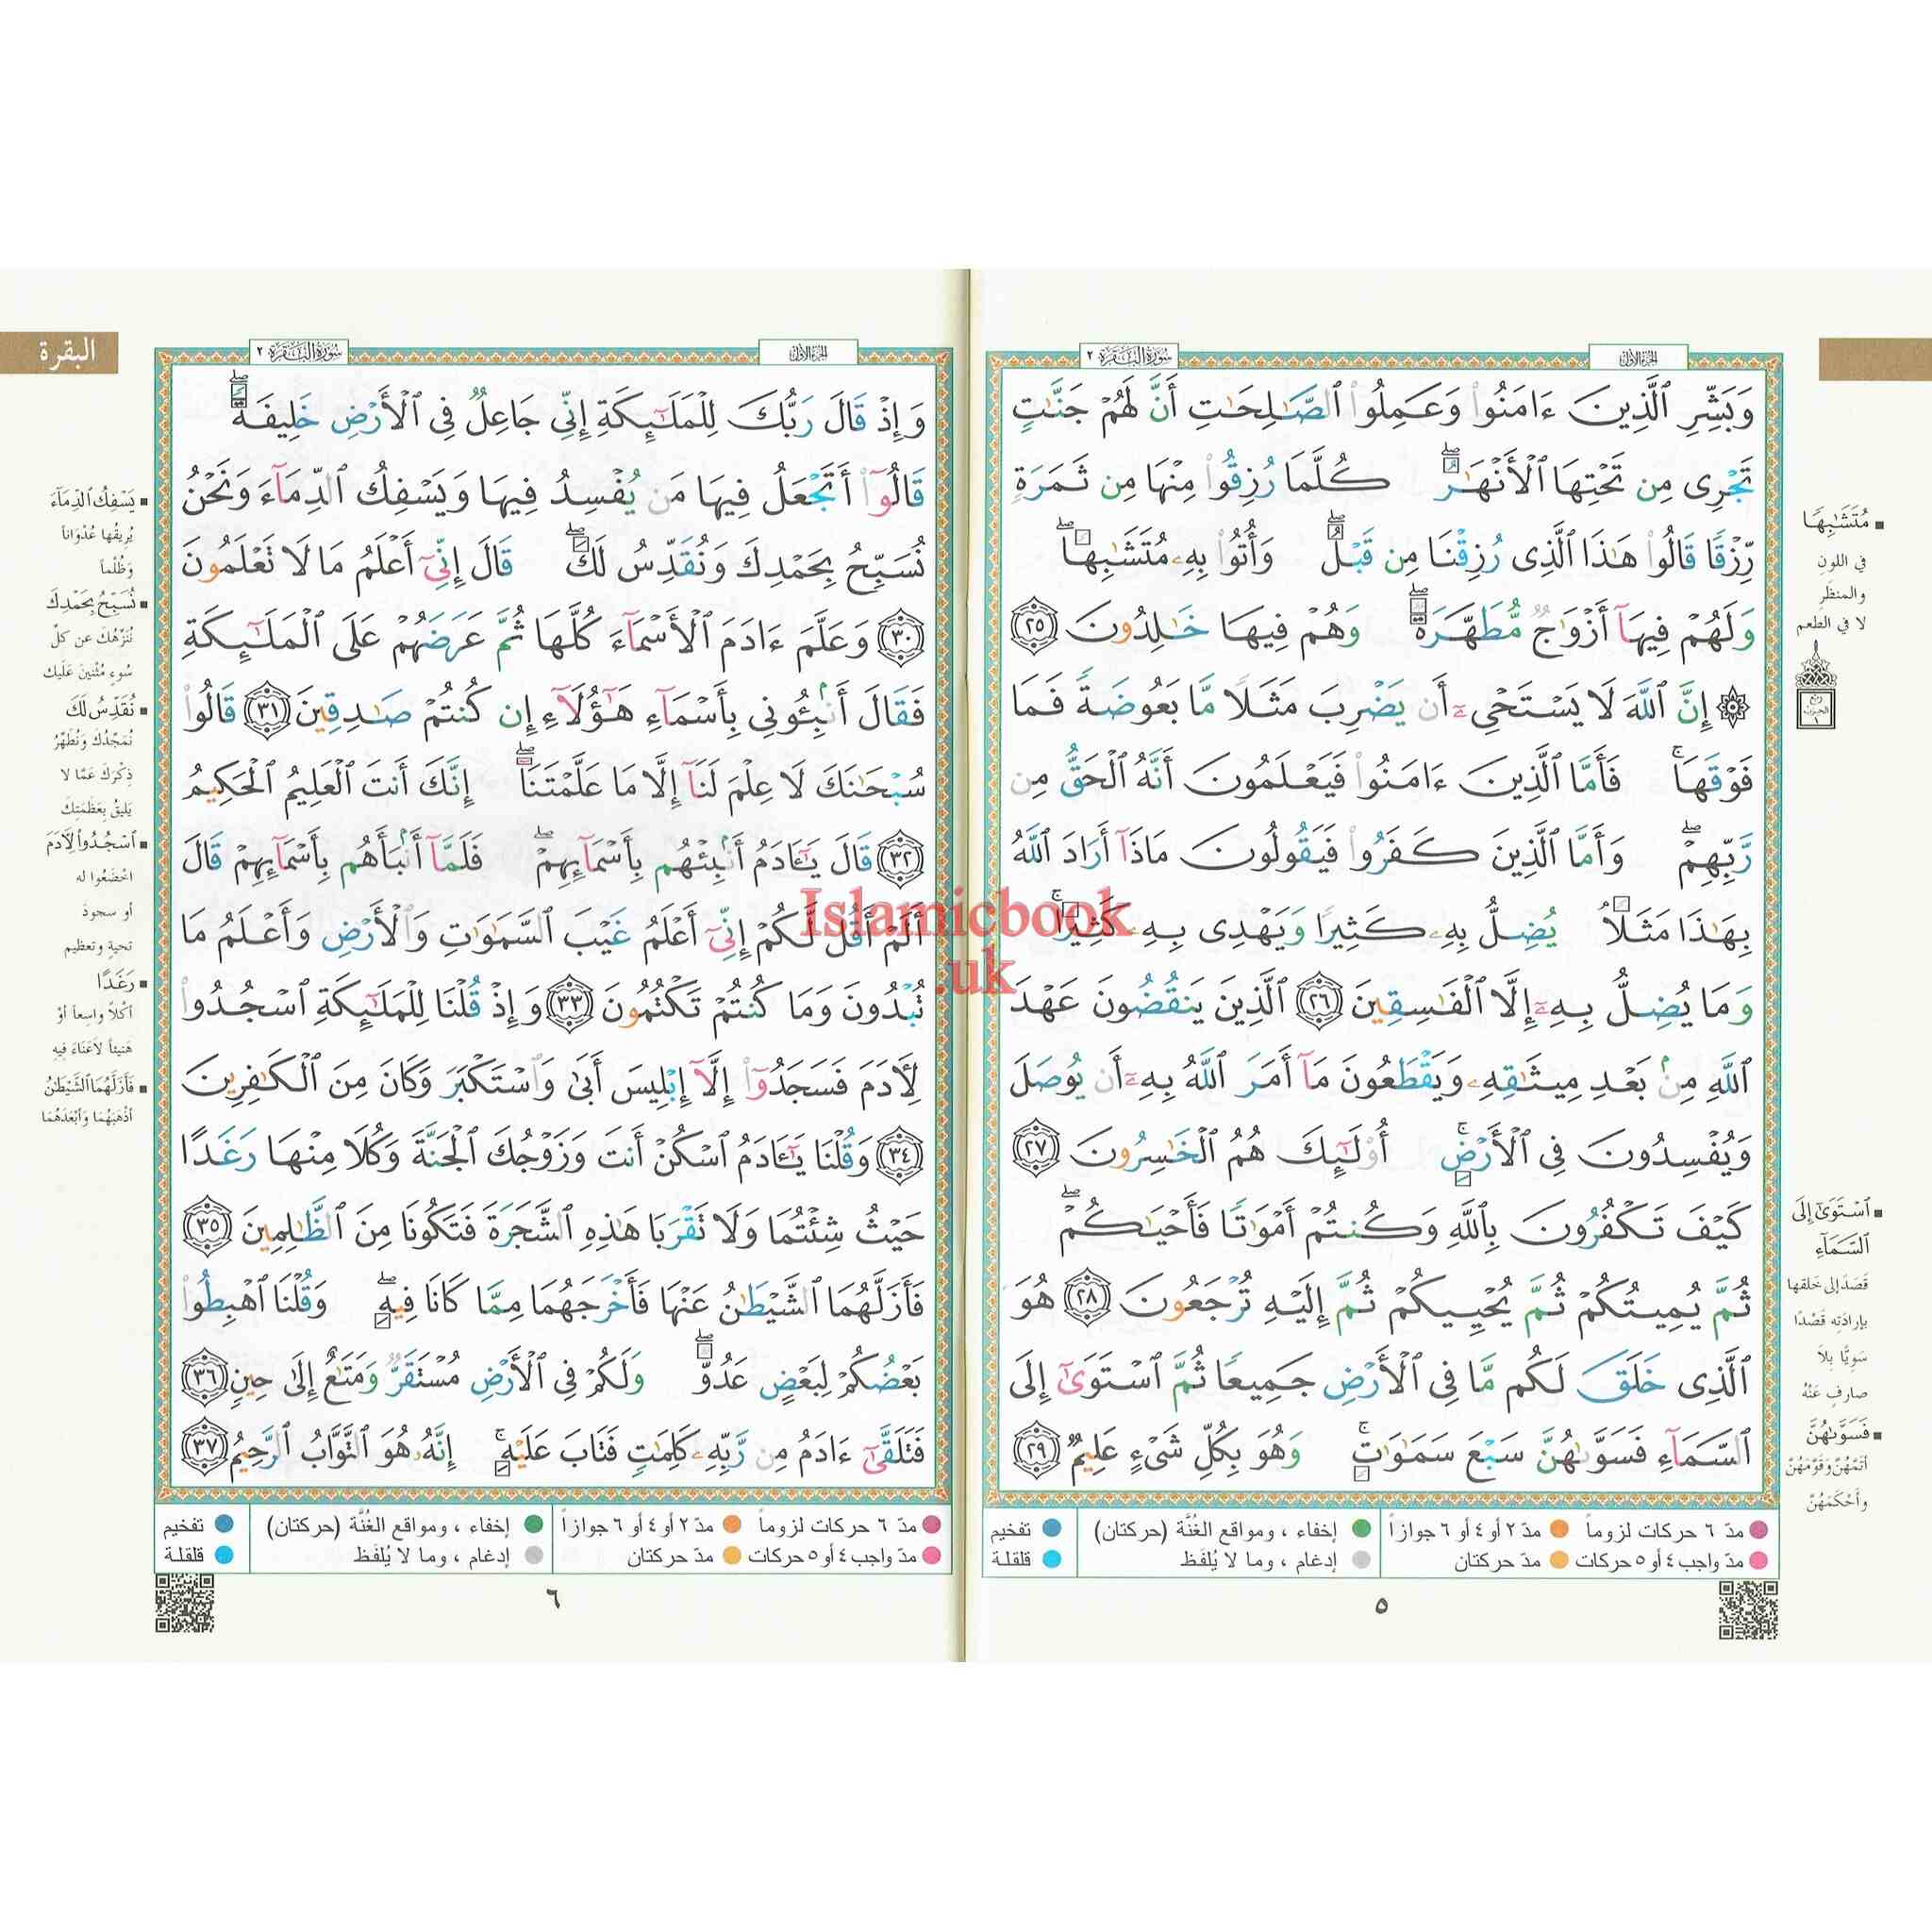 الجزء الأول
سورة البقرة ٢
وَبَشِّرِ ٱلَّذِينَ ءَامَنُوا۟ وَعَمِلُوا۟ ٱلصَّـٰلِحَـٰتِ أَنَّ لَهُمْ جَنَّـٰتٍ
تَجْرِى مِن تَحْتِهَا ٱلْأَنْهَـٰرُ ۖ كُلَّمَا رُزِقُوا۟ مِنْهَا مِن ثَمَرَةٍ
رِّزْقًا قَالُوا۟ هَـٰذَا ٱلَّذِى رُزِقْنَا مِن قَبْلُ ۖ وَأُتُوا۟ بِهِۦ مُتَشَـٰبِهًا ۖ
وَلَهُمْ فِيهَآ أَزْوَٰجٌ مُّطَهَّرَةٌ ۖ وَهُمْ فِيهَا خَـٰلِدُونَ ٢٥
۞ إِنَّ ٱللَّهَ لَا يَسْتَحْىِۦٓ أَن يَضْرِبَ مَثَلًا مَّا بَعُوضَةً فَمَا
فَوْقَهَا ۚ فَأَمَّا ٱلَّذِينَ ءَامَنُوا۟ فَيَعْلَمُونَ أَنَّهُ ٱلْحَقُّ مِن
رَّبِّهِمْ ۖ وَأَمَّا ٱلَّذِينَ كَفَرُوا۟ فَيَقُولُونَ مَاذَآ أَرَادَ ٱللَّهُ
بِهَـٰذَا مَثَلًا يُضِلُّ بِهِۦ كَثِيرًا وَيَهْدِى بِهِۦ كَثِيرًا ۚ
وَمَا يُضِلُّ بِهِۦٓ إِلَّا ٱلْفَـٰسِقِينَ ٢٦ ٱلَّذِينَ يَنقُضُونَ عَهْدَ
ٱللَّهِ مِنۢ بَعْدِ مِيثَـٰقِهِۦ وَيَقْطَعُونَ مَآ أَمَرَ ٱللَّهُ بِهِۦٓ أَن يُوصَلَ
وَيُفْسِدُونَ فِى ٱلْأَرْضِ ۚ أُو۟لَـٰٓئِكَ هُمُ ٱلْخَـٰسِرُونَ ٢٧
كَيْفَ تَكْفُرُونَ بِٱللَّهِ وَكُنتُمْ أَمْوَٰتًا فَأَحْيَـٰكُمْ ۖ
ثُمَّ يُمِيتُكُمْ ثُمَّ يُحْيِيكُمْ ثُمَّ إِلَيْهِ تُرْجَعُونَ ٢٨ هُوَ
ٱلَّذِى خَلَقَ لَكُم مَّا فِى ٱلْأَرْضِ جَمِيعًا ثُمَّ ٱسْتَوَىٰٓ إِلَى
ٱلسَّمَآءِ فَسَوَّىٰهُنَّ سَبْعَ سَمَـٰوَٰتٍ ۚ وَهُوَ بِكُلِّ شَىْءٍ عَلِيمٌ ٢٩
مُتَشَـٰبِهًا
في اللون
والمنظَرِ
لا في الطعم
ربع
الحزب
١
ٱسْتَوَىٰٓ إِلَى
ٱلسَّمَآءِ
قَصَدَ إلى خَلقها
بإرادَتِه قَصْدًا
سَوِيًّا بِلاَ
صارِفٍ عَنْهُ
فَسَوَّىٰهُنَّ
أتَمَّهُنّ وَقَوّمَهُنّ
وأَحْكَمَهُنّ
مدّ ٦ حركات لزوماً مدّ ٢ أو ٤ أو ٦ جوازاً إخفاء ، ومواقع الغُنَّة (حركتان) تفخيم
مدّ واجب ٤ أو ٥ حركات مدّ حركتان إدغام ، وما لا يُلفَظ قلقلة
٥
البقرة
الجزء الأول
سورة البقرة ٢
وَإِذْ قَالَ رَبُّكَ لِلْمَلَـٰٓئِكَةِ إِنِّى جَاعِلٌ فِى ٱلْأَرْضِ خَلِيفَةً ۖ
قَالُوٓا۟ أَتَجْعَلُ فِيهَا مَن يُفْسِدُ فِيهَا وَيَسْفِكُ ٱلدِّمَآءَ وَنَحْنُ
نُسَبِّحُ بِحَمْدِكَ وَنُقَدِّسُ لَكَ ۖ قَالَ إِنِّىٓ أَعْلَمُ مَا لَا تَعْلَمُونَ
٣٠ وَعَلَّمَ ءَادَمَ ٱلْأَسْمَآءَ كُلَّهَا ثُمَّ عَرَضَهُمْ عَلَى ٱلْمَلَـٰٓئِكَةِ
فَقَالَ أَنۢبِـُٔونِى بِأَسْمَآءِ هَـٰٓؤُلَآءِ إِن كُنتُمْ صَـٰدِقِينَ ٣١ قَالُوا۟
سُبْحَـٰنَكَ لَا عِلْمَ لَنَآ إِلَّا مَا عَلَّمْتَنَآ ۖ إِنَّكَ أَنتَ ٱلْعَلِيمُ ٱلْحَكِيمُ
٣٢ قَالَ يَـٰٓـَٔادَمُ أَنۢبِئْهُم بِأَسْمَآئِهِمْ ۖ فَلَمَّآ أَنۢبَأَهُم بِأَسْمَآئِهِمْ قَالَ
أَلَمْ أَقُل لَّكُمْ إِنِّىٓ أَعْلَمُ غَيْبَ ٱلسَّمَـٰوَٰتِ وَٱلْأَرْضِ وَأَعْلَمُ مَا
تُبْدُونَ وَمَا كُنتُمْ تَكْتُمُونَ ٣٣ وَإِذْ قُلْنَا لِلْمَلَـٰٓئِكَةِ ٱسْجُدُوا۟
لِـَٔادَمَ فَسَجَدُوٓا۟ إِلَّآ إِبْلِيسَ أَبَىٰ وَٱسْتَكْبَرَ وَكَانَ مِنَ ٱلْكَـٰفِرِينَ
٣٤ وَقُلْنَا يَـٰٓـَٔادَمُ ٱسْكُنْ أَنتَ وَزَوْجُكَ ٱلْجَنَّةَ وَكُلَا مِنْهَا رَغَدًا
حَيْثُ شِئْتُمَا وَلَا تَقْرَبَا هَـٰذِهِ ٱلشَّجَرَةَ فَتَكُونَا مِنَ ٱلظَّـٰلِمِينَ ٣٥
فَأَزَلَّهُمَا ٱلشَّيْطَـٰنُ عَنْهَا فَأَخْرَجَهُمَا مِمَّا كَانَا فِيهِ ۖ وَقُلْنَا ٱهْبِطُوا۟
بَعْضُكُمْ لِبَعْضٍ عَدُوٌّ ۖ وَلَكُمْ فِى ٱلْأَرْضِ مُسْتَقَرٌّ وَمَتَـٰعٌ إِلَىٰ حِينٍ ٣٦
فَتَلَقَّىٰٓ ءَادَمُ مِن رَّبِّهِۦ كَلِمَـٰتٍ فَتَابَ عَلَيْهِ ۚ إِنَّهُۥ هُوَ ٱلتَّوَّابُ ٱلرَّحِيمُ ٣٧
يَسْفِكُ ٱلدِّمَآءَ
يُرِيقُها عُدْوَاناً
وَظُلْماً
نُسَبِّحُ بِحَمْدِكَ
نُنَزِّهُكَ عن كلِّ
سُوءٍ مُثْنينَ عَلَيك
نُقَدِّسُ لَكَ
نُمَجِّدُكَ وَنُطَهِّرُ
ذِكْرَكَ عَمَّا لا
يَليقُ بِعَظَمَتِكَ
ٱسْجُدُوا۟ لِـَٔادَمَ
اخْضَعُوا له
أو سجودَ
تحيةٍ وتعظيم
رَغَدًا
أكْلاً واسِعاً أوْ
هَنيئاً لاَعَنَاءَ فِيهِ
فَأَزَلَّهُمَا ٱلشَّيْطَـٰنُ
أذْهَبَهُمَا وَأبْعَدَهُمَا
مدّ ٦ حركات لزوماً مدّ ٢ أو ٤ أو ٦ جوازاً إخفاء ، ومواقع الغُنَّة (حركتان) تفخيم
مدّ واجب ٤ أو ٥ حركات مدّ حركتان إدغام ، وما لا يُلفَظ قلقلة
٦
Islamicbook
.uk